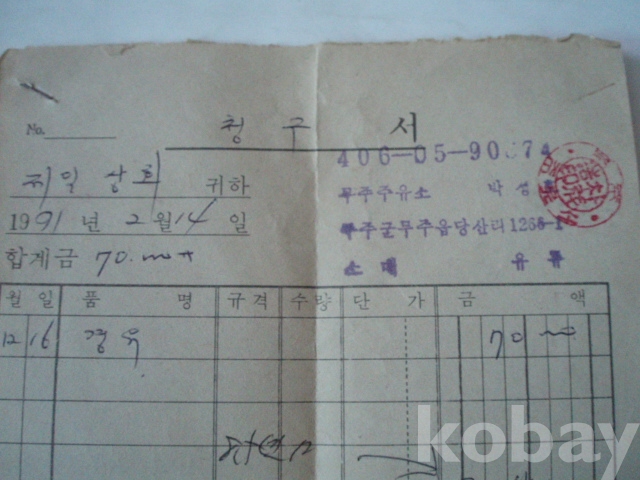 No.
청구서
406-05-90
제일 상회 귀하
무주주유소 박성
1991년 2월 14일
무주군무주읍당산리1266-1
합계금 70.000
소매 유류
월 일 품명 규격 수량 단가 금액
12 16 경유 70 000
kobay